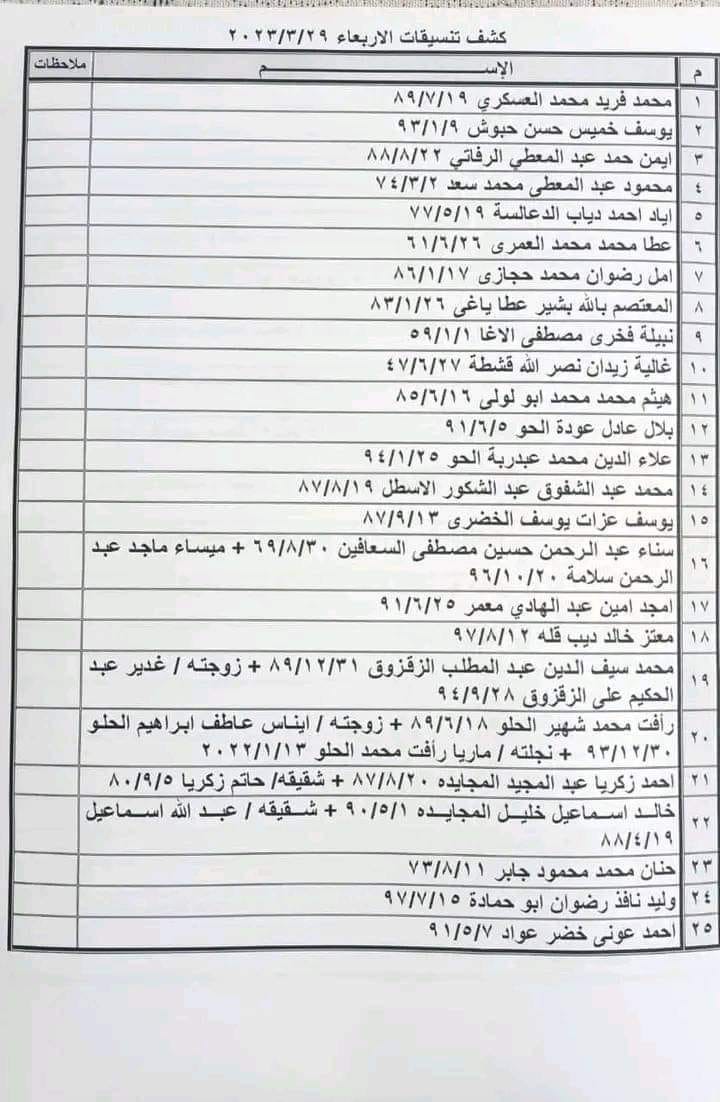 كشف تنسيقات الاربعاء ٢٠٢٣/٣/٢٩
م الإســـــــــــم ملاحظات
١ محمد فريد محمد العسكري ٨٩/٧/١٩
٢ يوسف خميس حسن حبوش ٩٣/١/٩
٣ ايمن حمد عبد المعطي الرفاتي ٨٨/٨/٢٢
٤ محمود عبد المعطى محمد سعد ٧٤/٣/٢
٥ اياد احمد دياب الدعالسة ٧٧/٥/١٩
٦ عطا محمد محمد العمرى ٦١/٦/٢٦
٧ امل رضوان محمد حجازى ٨٦/١/١٧
٨ المعتصم بالله بشير عطا ياغى ٨٣/١/٢٦
٩ نبيلة فخرى مصطفى الاغا ٥٩/١/١
١٠ غالية زيدان نصر الله قشطة ٤٧/٦/٢٧
١١ هيثم محمد محمد ابو لولى ٨٥/٦/١٦
١٢ بلال عادل عودة الحو ٩١/٦/٥
١٣ علاء الدين محمد عبدربة الحو ٩٤/١/٢٥
١٤ محمد عبد الشفوق عبد الشكور الاسطل ٨٧/٨/١٩
١٥ يوسف عزات يوسف الخضرى ٨٧/٩/١٣
١٦ سناء عبد الرحمن حسين مصطفى السعافين ٦٩/٨/٣٠ + ميساء ماجد عبد
الرحمن سلامة ٩٦/١٠/٢٠
١٧ امجد امين عبد الهادي معمر ٩١/٦/٢٥
١٨ معتز خالد ديب قله ٩٧/٨/١٢
١٩ محمد سيف الدين عبد المطلب الزقزوق ٨٩/١٢/٣١ + زوجته / غدير عبد
الحكيم على الزقزوق ٩٤/٩/٢٨
٢٠ رأفت محمد شهير الحلو ٨٩/٦/١٨ + زوجته / ايناس عاطف ابراهيم الحلو
٩٣/١٢/٣٠ + نجلته / ماريا رأفت محمد الحلو ٢٠٢٢/١/١٣
٢١ احمد زكريا عبد المجيد المجايده ٨٧/٨/٢٠ + شقيقه/ حاتم زكريا ٨٠/٩/٥
٢٢ خالد اسماعيل خليل المجايده ٩٠/٥/١ + شقيقه / عبد الله اسماعيل
٨٨/٤/١٩
٢٣ حنان محمد محمود جابر ٧٣/٨/١١
٢٤ وليد نافذ رضوان ابو حمادة ٩٧/٧/١٥
٢٥ احمد عونى خضر عواد ٩١/٥/٧